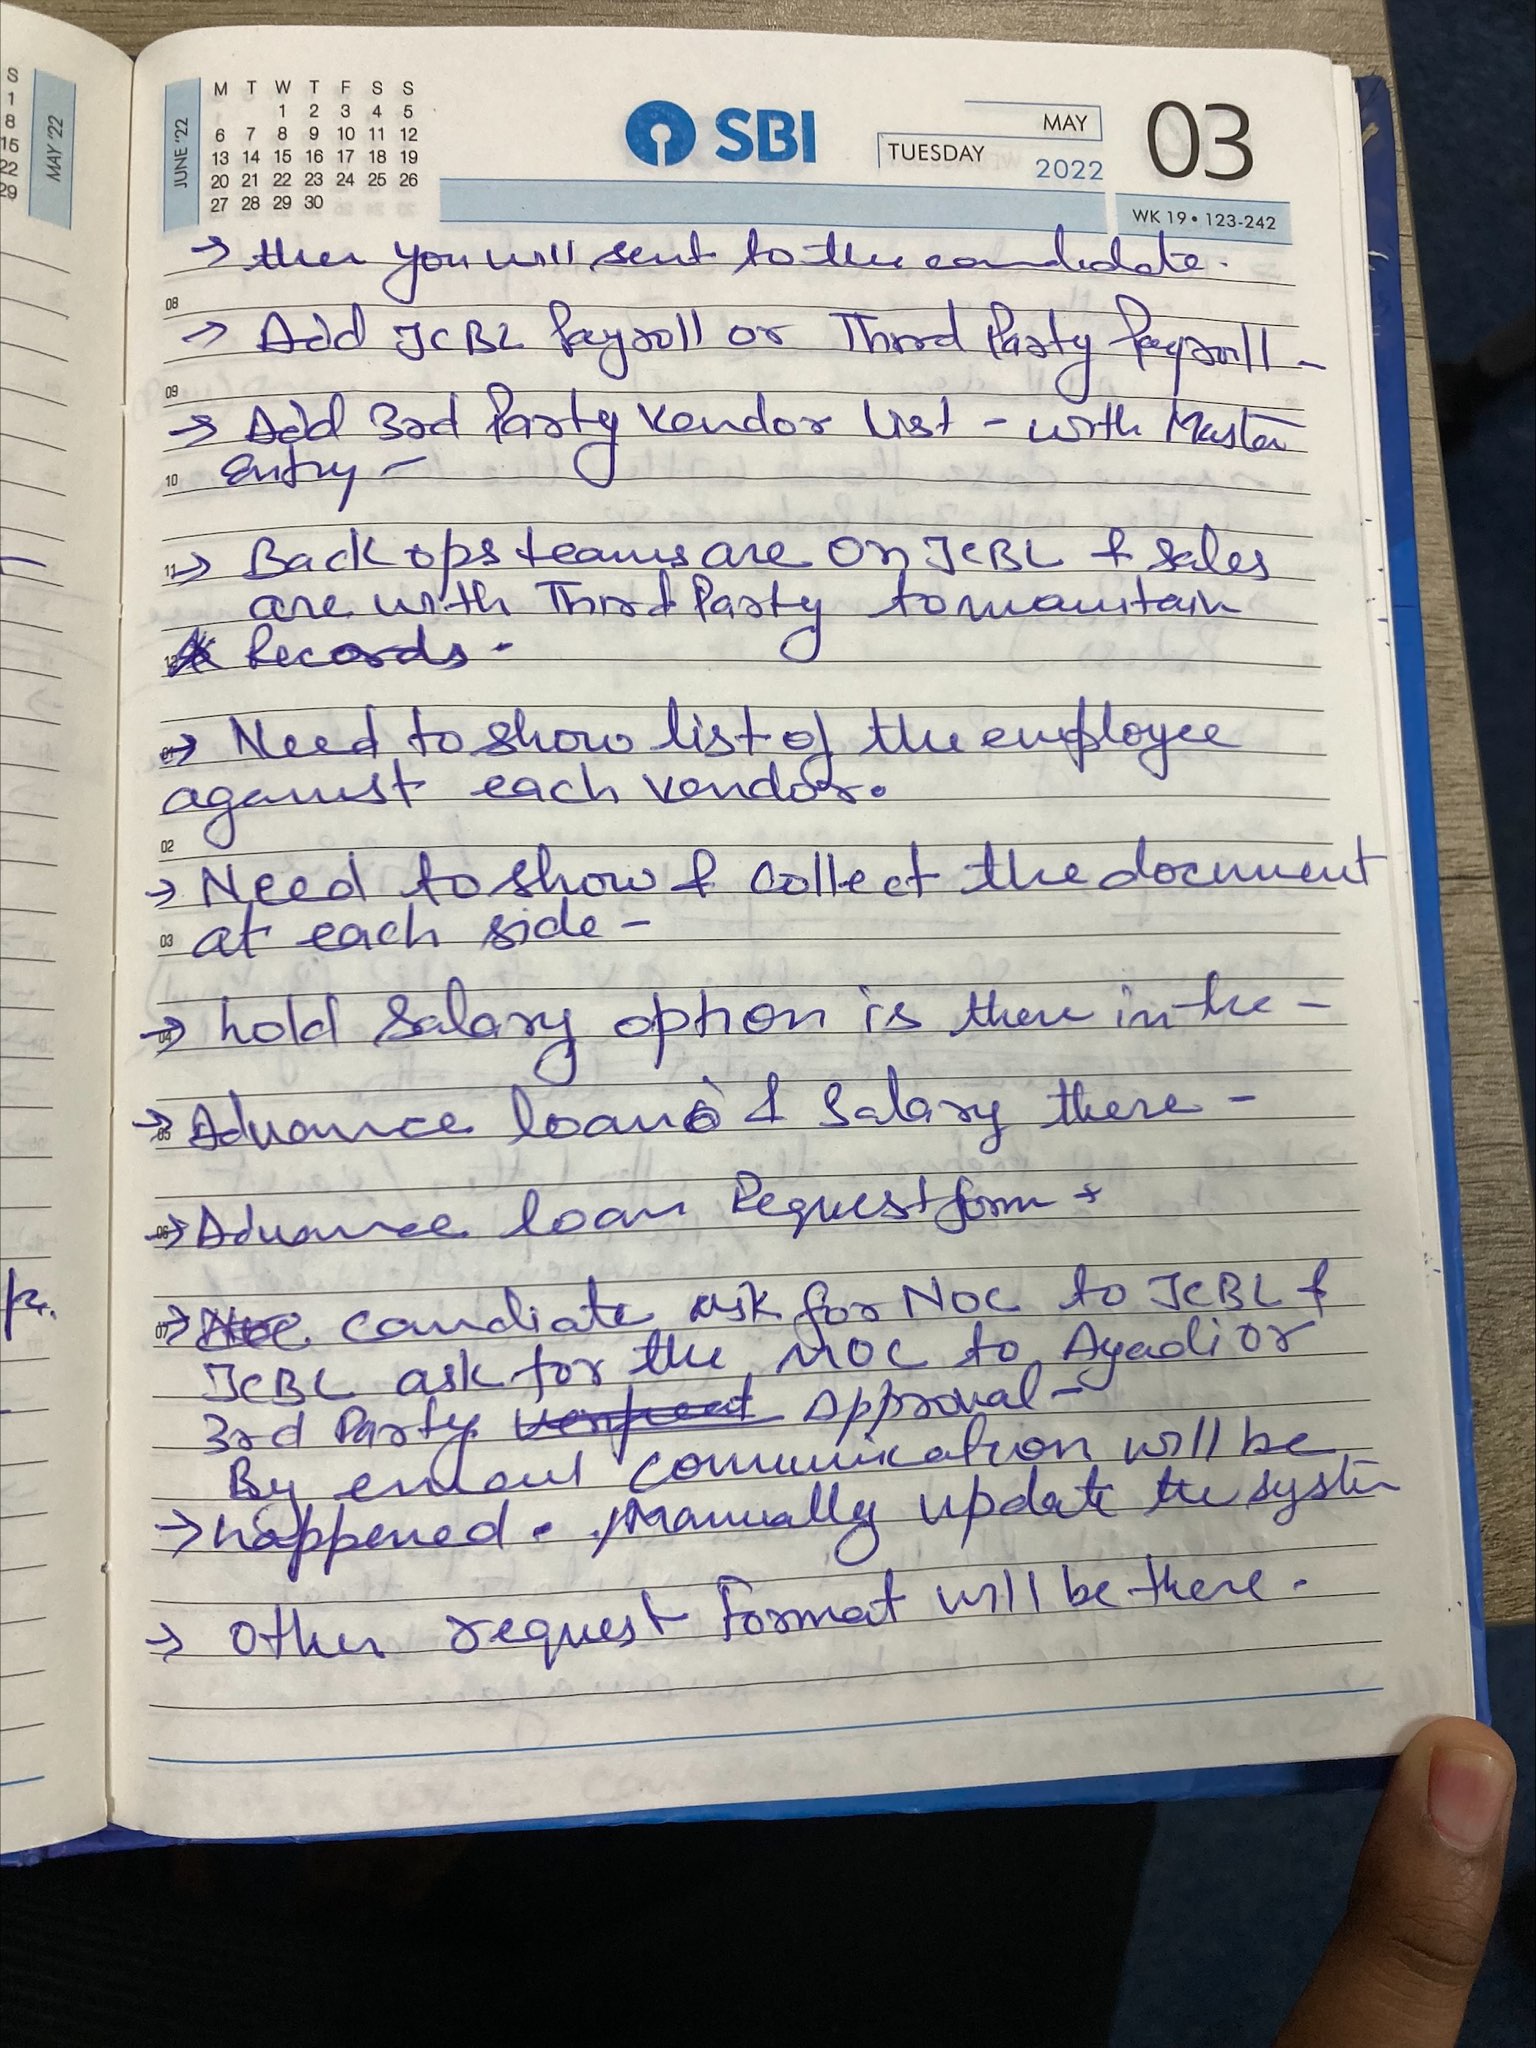 S
1
8
15
22
29
MAY '22
JUNE '22
M T W T F S S
1 2 3 4 5
6 7 8 9 10 11 12
13 14 15 16 17 18 19
20 21 22 23 24 25 26
27 28 29 30
SBI
MAY
TUESDAY
2022
03
WK 19 • 123-242
→ then you will sent to the candidate.
08
→ Add JCBL Payroll or Third Party Payroll -
09
→ Add 3rd Party Vendor List - with Master
10 Entry -
11 → Back ops teams are on JCBL & Sales
are with Third Party to maintain
12 Records.
01 → Need to show list of the employee
against each vendor.
02
→ Need to show & collect the document
03 at each side -
04 → hold Salary option is there in the -
05 → Advance loan & Salary there -
06 → Advance loan Request form +
07 → candiate ask for NOC to JCBL &
JCBL ask for the NOC to Ayadi or
3rd Party Approval -
By email communication will be
→ happened. Manually update the system
→ Other request format will be there.